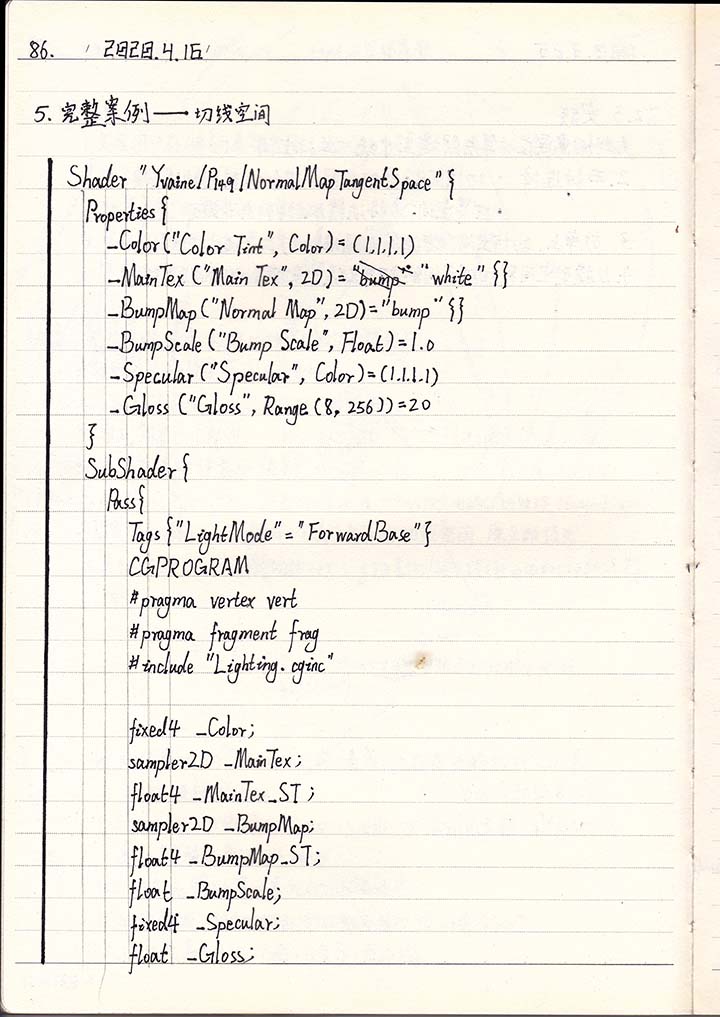 86. 2020.4.16
5. 完整案例——切线空间
Shader "Yvaine/P149/NormalMapTangentSpace" {
Properties {
_Color ("Color Tint", Color) = (1.1.1.1)
_MainTex ("Main Tex", 2D) = "bump" "white" {}
_BumpMap ("Normal Map", 2D) = "bump" {}
_BumpScale ("Bump Scale", Float) = 1.0
_Specular ("Specular", Color) = (1.1.1.1)
_Gloss ("Gloss", Range (8, 256)) = 20
}
SubShader {
Pass {
Tags {"LightMode" = "ForwardBase"}
CGPROGRAM
#pragma vertex vert
#pragma fragment frag
#include "Lighting.cginc"
fixed4 _Color;
sampler2D _MainTex;
float4 _MainTex_ST;
sampler2D _BumpMap;
float4 _BumpMap_ST;
float _BumpScale;
fixed4 _Specular;
float _Gloss;